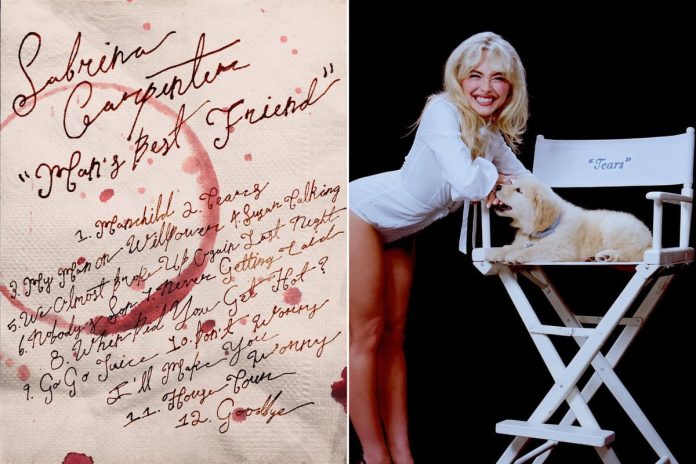 Sabrina
Carpenter
"Man's Best Friend"
1. Manchild 2. Tears
3. My Man on Willpower 4. Sugar Talking
5. We Almost Broke Up Again Last Night
6. Nobody's Son 7. Never Getting Laid
8. When Did You Get Hot?
9. Go Go Juice 10. Don't Worry
I'll Make You Worry
11. House Tour
12. Goodbye
"Tears"